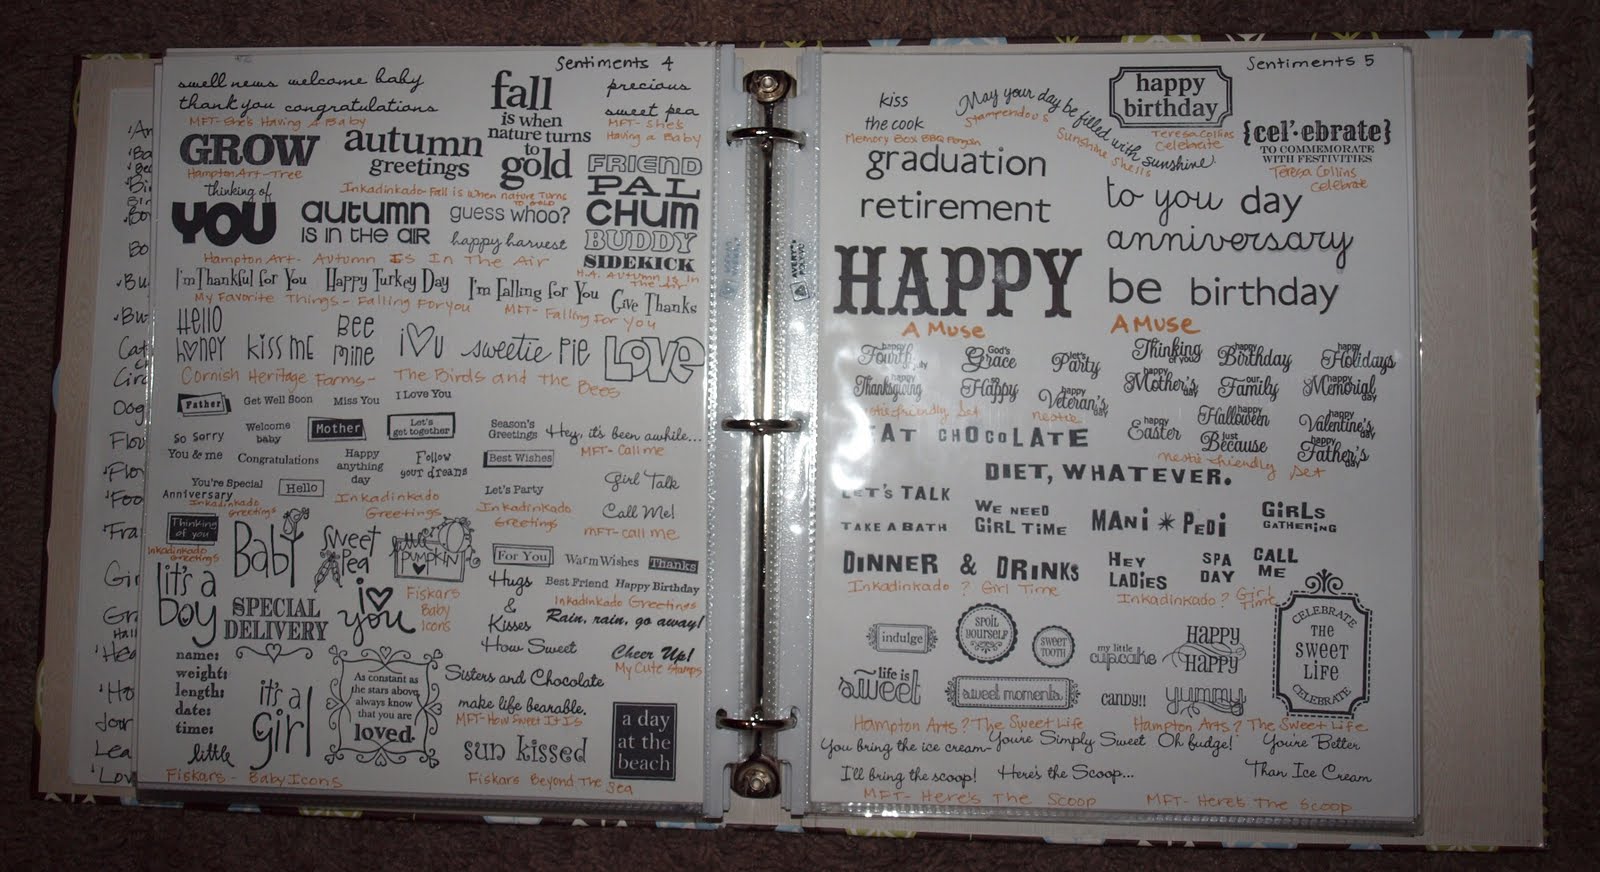 Sentiments 4
swell news welcome baby
thank you congratulations
MFT-She's Having A Baby
fall
is when
nature turns
to
gold
precious
sweet pea
MFT-She's
Having a Baby
GROW
Hampton Art-Tree
autumn
greetings
Inkadinkado-Fall is When Nature Turns
to Gold
FRIEND
PAL
CHUM
BUDDY
SIDEKICK
H.A. Autumn Is In
The Air
thinking of
YOU
autumn
IS IN THE AIR
guess whoo?
happy harvest
Hampton Art- Autumn Is In The Air
I'm Thankful for You
Happy Turkey Day
I'm Falling for You
Give Thanks
My Favorite Things-Falling For You
MFT-Falling For You
Hello
honey
kiss me
Bee
mine
i♡u
sweetie pie
LOVE
Cornish Heritage Farms- The Birds and The Bees
Father
Get Well Soon
Miss You
I Love You
So Sorry
Welcome
baby
Mother
Let's
get together
Season's
Greetings
Hey, it's been awhile...
MFT-Call me
You & me
Congratulations
Happy
anything
day
Follow
your dreams
Best Wishes
Girl Talk
You're Special
Anniversary
Hello
Inkadinkado
Greetings
Inkadinkado
Greetings
Let's Party
Inkadinkado
Greetings
Call Me!
MFT-call me
Thinking
of you
Inkadinkado
Greetings
Baby
Sweet
Pea
little
PUMPKIN
For You
Warm Wishes
Thanks
it's a
boy
SPECIAL
DELIVERY
i♡
you
Fiskars
Baby
Icons
Hugs
&
Kisses
Best Friend
Happy Birthday
Inkadinkado Greetings
Rain, rain, go away!
How Sweet
Cheer Up!
My Cute Stamps
name:
weight:
length:
date:
time:
it's a
girl
little
As constant as
the stars above,
always know
that you are
loved.
Sisters and Chocolate
make life bearable.
MFT-How Sweet It Is
sun kissed
a day
at the
beach
Fiskars - Baby Icons
Fiskars Beyond The
Sea
Sentiments 5
kiss
the cook
Memory Box BBQ Penguin
May your day be filled with sunshine!
Stampendous
Sunshine Shells
happy
birthday
Teresa Collins
Celebrate
{cel'·ebrate}
TO COMMEMORATE
WITH FESTIVITIES
Teresa Collins
Celebrate
graduation
retirement
to you day
anniversary
HAPPY
be birthday
A Muse
A Muse
happy
Fourth
of July
God's
Grace
let's
Party
Thinking
of you
happy
Birthday
happy
Holidays
happy
Thanksgiving
happy
Happy
happy
Veteran's
day
happy
Mother's
day
our
Family
happy
Memorial
day
happy
Easter
happy
Halloween
just
Because
happy
Valentine's
day
happy
Father's
day
nestie-friendly Set
EAT CHOCOLATE
DIET, WHATEVER.
LET'S TALK
TAKE A BATH
WE NEED
GIRL TIME
MANI * PEDI
GIRLS
GATHERING
DINNER & DRINKS
HEY
LADIES
SPA
DAY
CALL
ME
Inkadinkado? Girl Time
Inkadinkado? Girl
Time
indulge
SPOIL
YOURSELF
SWEET
TOOTH
my little
cupcake
HAPPY
HAPPY
CELEBRATE
THE
SWEET
LIFE
CELEBRATE
life is
sweet
sweet moments
CANDY!!
yummy
Hampton Arts? The Sweet Life
Hampton Arts? The Sweet Life
You bring the ice cream-
I'll bring the scoop!
You're Simply Sweet
Here's the Scoop...
Oh fudge!
You're Better
Than Ice Cream
MFT-Here's The Scoop
MFT-Here's The Scoop